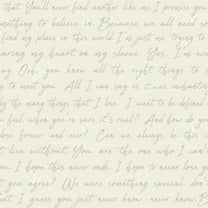 that. You'll never find another like me. I promise you
something to believe in. Because we all need so
find my place in this world. I'm just me, trying to
aring my heart on my sleeve. Yes, I'm we
ay Ooh, you know all the right things to s
g to meet you. All I can say is it was enchantin
by the many things that I love. I want to be defined
feel when you're sure it's real? And how do yo
lose forever and ever? Can we always be this
t live without. You are the one who I can't
ou, I hope this never ends. I hope to never lose
t you agree? We were something special, don't
hat I guess you just never know, never know. B